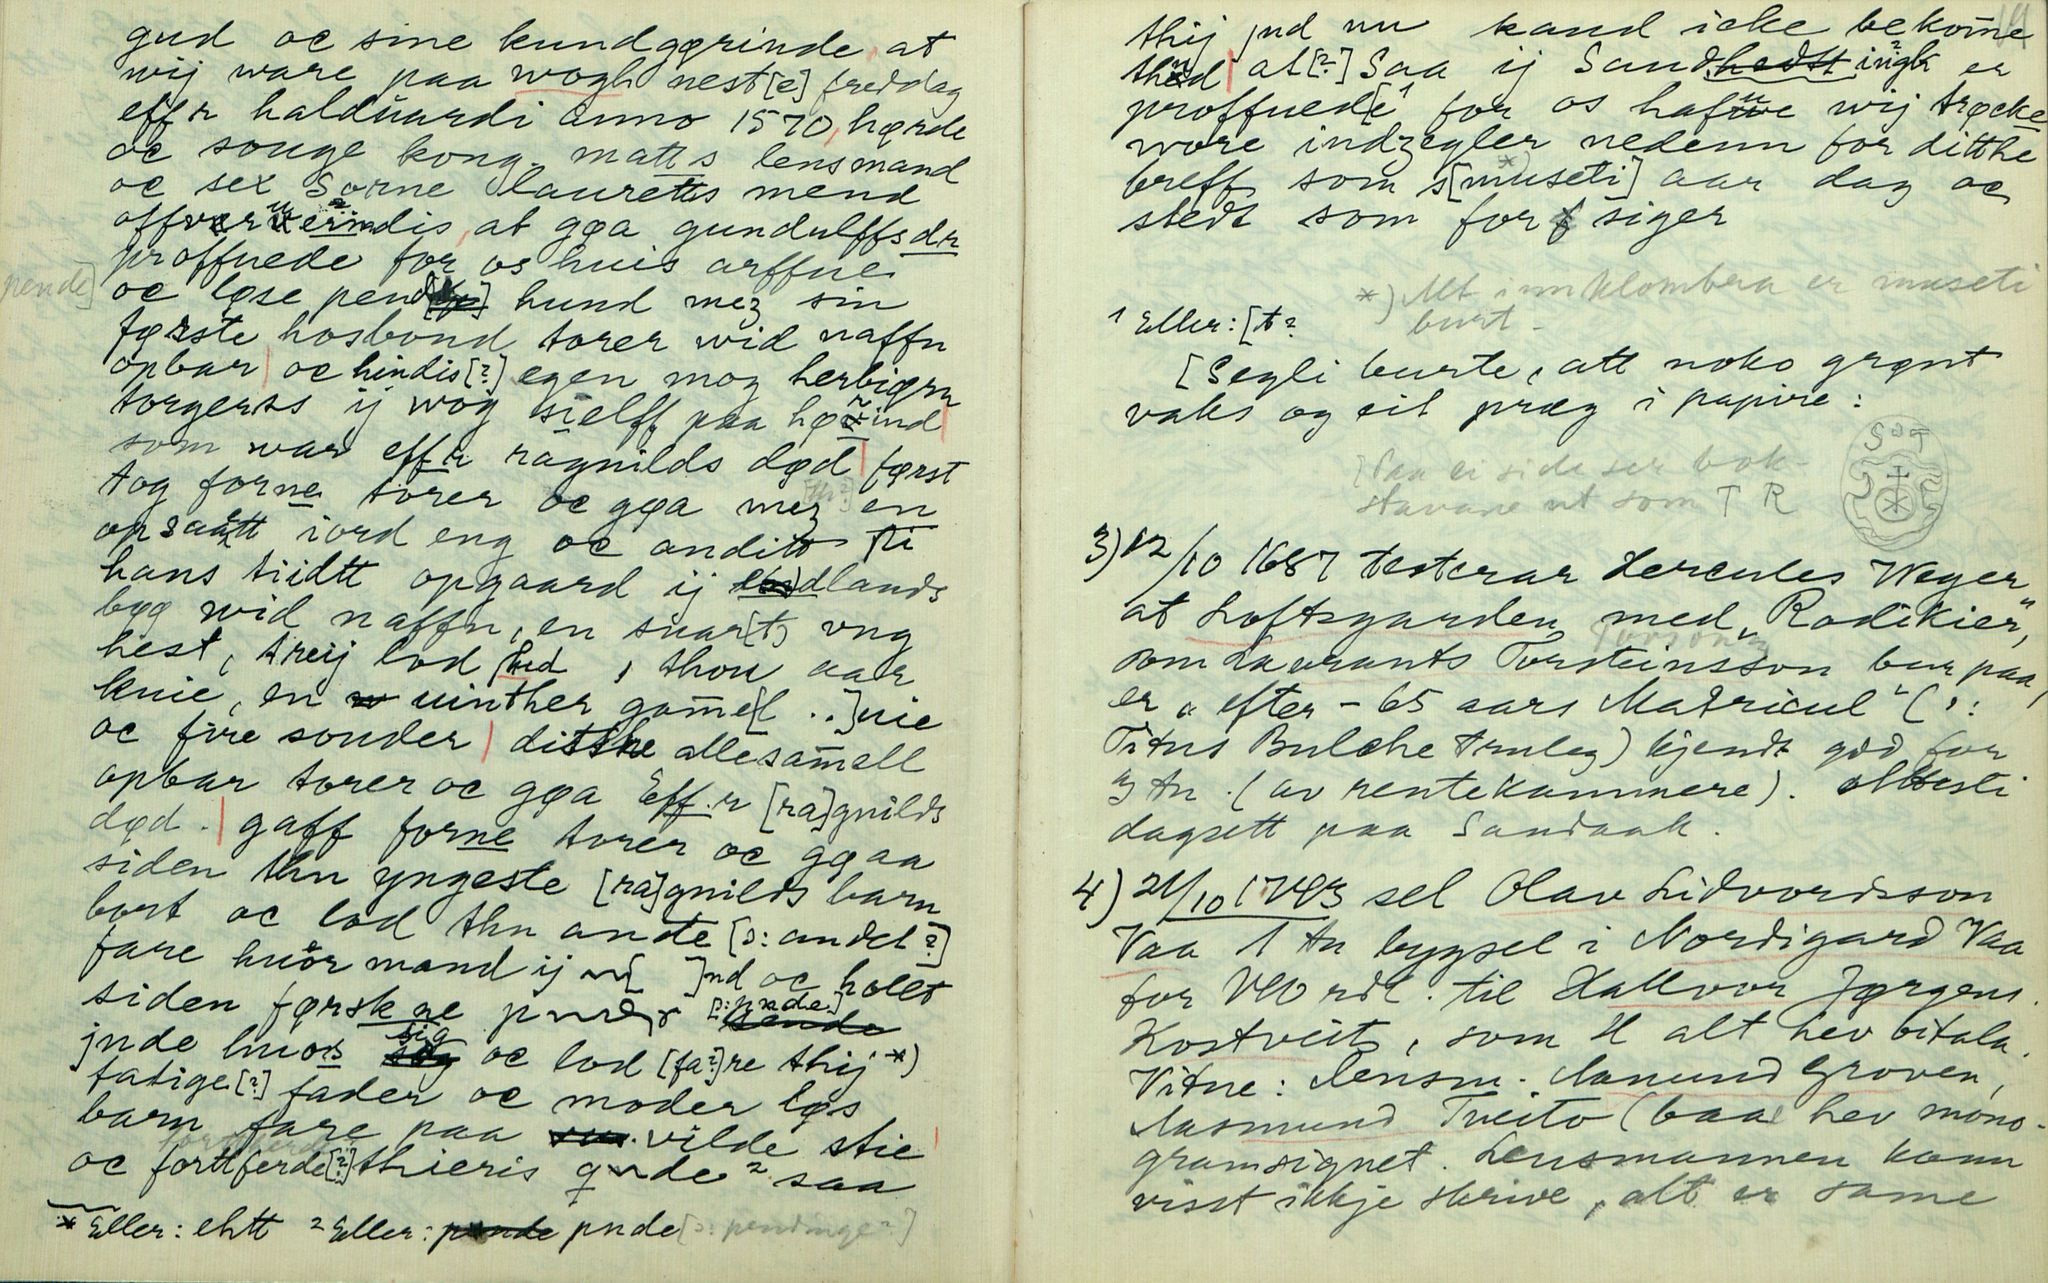 gud oc sine kundgørinde, at
wij ware paa wogh nest[e] freddag
effr halduardi anno 1570, hørde
oc souge kong. matts lensmand
oc sex Sorne laurettis mend
at gøa gundulffsdr
proffuede for os huis arffue
oc løse pend hund mez sin
første hosbond torer wid naffn
opbar oc hindis[?] egen mog herbiørn
torgerss ij wog sielff paa
som war effr ragnilds død først
tog forne torer oc gøa mez [th?] en
opsaatt iord eng oc andit ti
hans tiidtt opgaard ij dlands
bøø wid naffn, en suar[t] vng
hest, treij lod, thou aar
kuie, en uinther gamel[l ..]uie
oc fire souder ditthe allesamell
opbar torer oc gøa Effr [ra]gnilds
død. gaff forne torer oc gøaa
siden thn yngeste [ra]gnilds barn
bort oc lod thn ande [ɔ: andet?]
fare huor mand ij [ ]nd oc hollt
siden førskne
jnde huos sig oc lod [fa?]re thij *)
fatige[?] fader oc moder løs
barn fare paa vilde stie
oc forttferde[?] thieris q de ² saa
* Eller: ehtt ² Eller: pnde [ɔ: pendinge?]
pende]
14
thij jnd nu kand icke bekome
at[?] Saa ij Sand ingh er
proffuede[¹ for os hafue wij trøcke
wore indzegler nedenn for ditthe
breff som s[museti] aar dag oc
stedt som for siger
*) Alt innklombra er museti
burt.
¹ Eller: [t?
[Segli burte, att noko grønt
vaks og eit præg i papire:
S T
[Paa ei side ser bok-
stavane ut som T R
3) 12/10 1687 testerar Hercules Weyer
at Loftsgarden med "Rødikier",
som Laurants Torsteinsson bur paa,
er "efter - 65 aars Matricul" (ɔ:
Titus Bulche truleg) kjendt god for
3 tn. (av rentekammere). Attesti
dagsett paa Sandaak.
4) 21/10 1743 sel Olav Lidvordsson
Vaa 1 tn bygsel i Nordigard Vaa
for rdl. til Hallvor Jørgens.
Kostveit, som H alt hev bitala.
Vitne: Lensm. Aanund Groven,
Aasmund Tveito (baa hev mono-
gramsignet. Lensmannen kann
visst ikkje skrive, alt er same